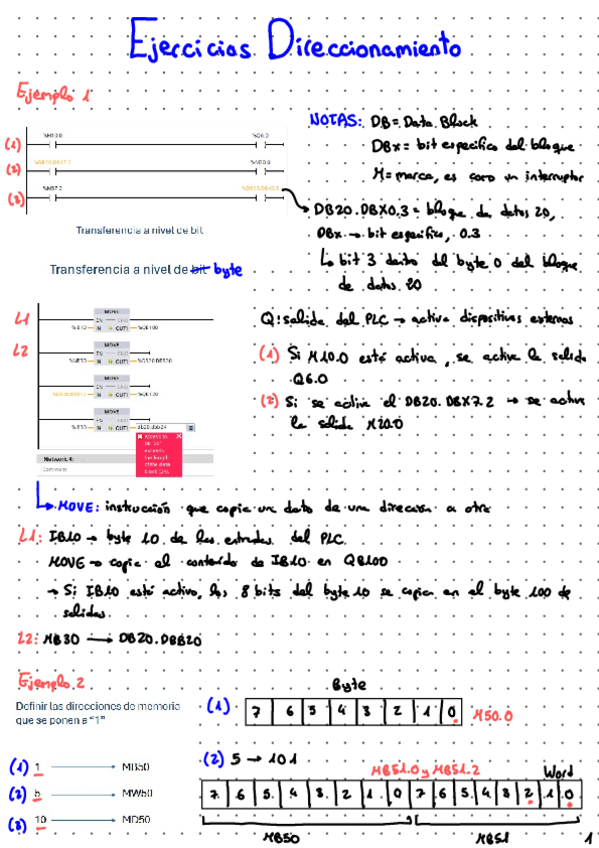 Ejercicios Direccionamiento
Ejemplo 1
NOTAS: DB = Data Block
DBx = bit especifico del bloque
M = marca, es como un interruptor
(1) %M10.0 %Q6.0
(2)
(3) %M37.2
DB20.DBX0.3 = bloque de datos 20,
DBx → bit especifico, 0.3
↳ bit 3 dentro del byte 0 del bloque
de datos 20
Transferencia a nivel de bit
Transferencia a nivel de bit byte
Q: salida del PLC → activa dispositivos externos
(1) Si M10.0 está activa, se activa la salida
Q6.0
(2) Si se activa el DB20.DBX7.2 → se activa
la salida M20.0
L1 MOVE
EN ENO
%IB10 IN OUT1 %QB100
L2 MOVE
EN ENO
%MB30 IN OUT1 %DB20.DBB20
MOVE
EN ENO
IN OUT1
MOVE
EN ENO
IN OUT1
Access to
exceeds
the length
of the data
block (24).
Network 4:
Comment
↳ MOVE: instrucción que copia un dato de una dirección a otra
L1: IB10 → byte 10 de las entradas del PLC
MOVE → copia el contenido de IB10 en QB100
→ Si IB10 está activo, los 8 bits del byte 10 se copian en el byte 100 de
salidas.
L2: MB30 → DB20.DBB20
Ejemplo 2
Definir las direcciones de memoria
que se ponen a "1"
Byte
(1) 7 6 5 4 3 2 1 0 M50.0
(1) 1 → MB50
(2) 5 → MW50
(3) 10 → MD50
(2) 5 → 101
MB51.0 y MB51.2
Word
7 6 5 4 3 2 1 0 7 6 5 4 3 2 1 0
MB50 MB51
1